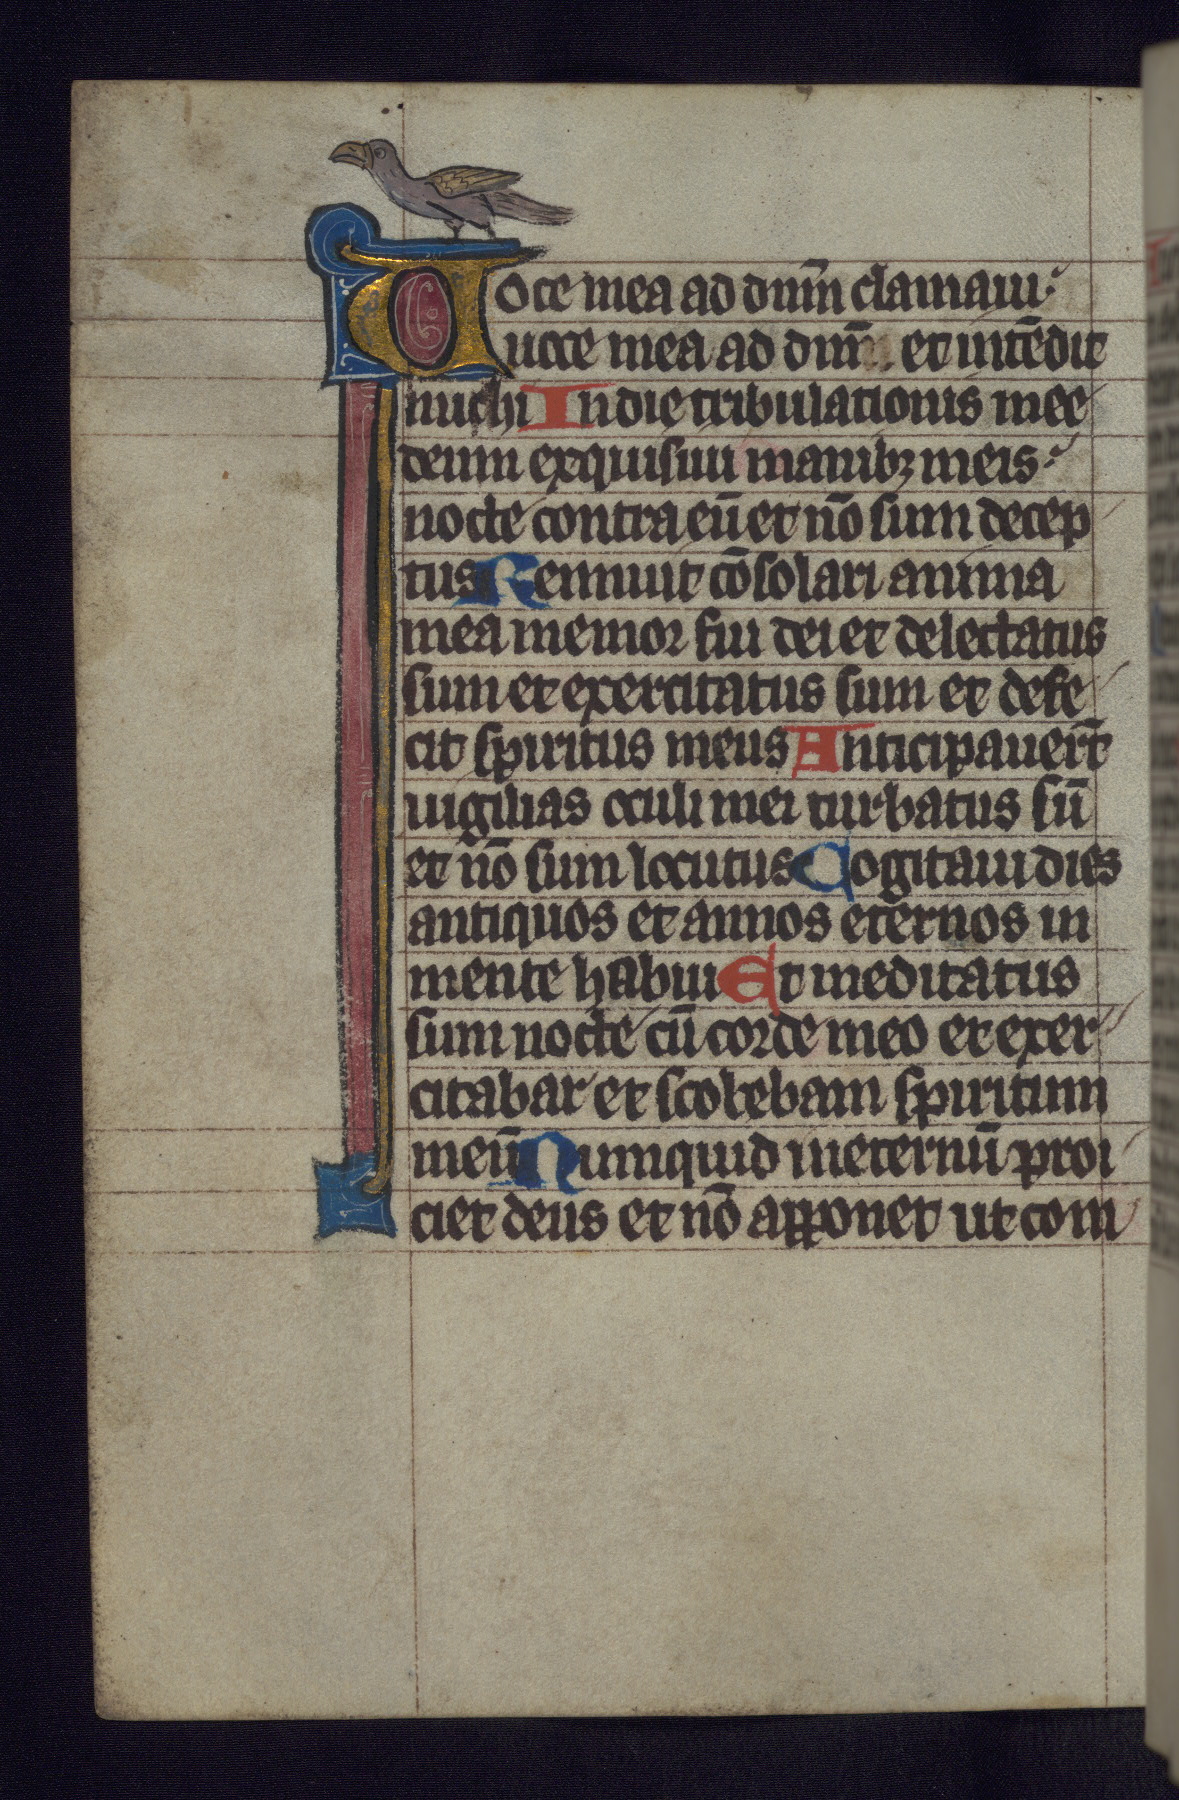 Voce mea ad dnm̄ clamaui
uoce mea ad dnm̄ et intēdit
michi In die tribulationis mee
deum exquisiui manibꝫ meis
nocte contra eū et nō sum decep
tus Rennuit cōsolari anima
mea memor fui dei et delectatus
sum et exercitatus sum et defe
cit spiritus meus Anticipauer̄t
uigilias oculi mei turbatus sū
et nō sum locutus Cogitaui dies
antiquos et annos eternos in
mente habui Et meditatus
sum nocte cū corde meo et exer
citabar et scobebam spiritum
meū Numquid in eternū proi
ciet deus et nō apponet ut com